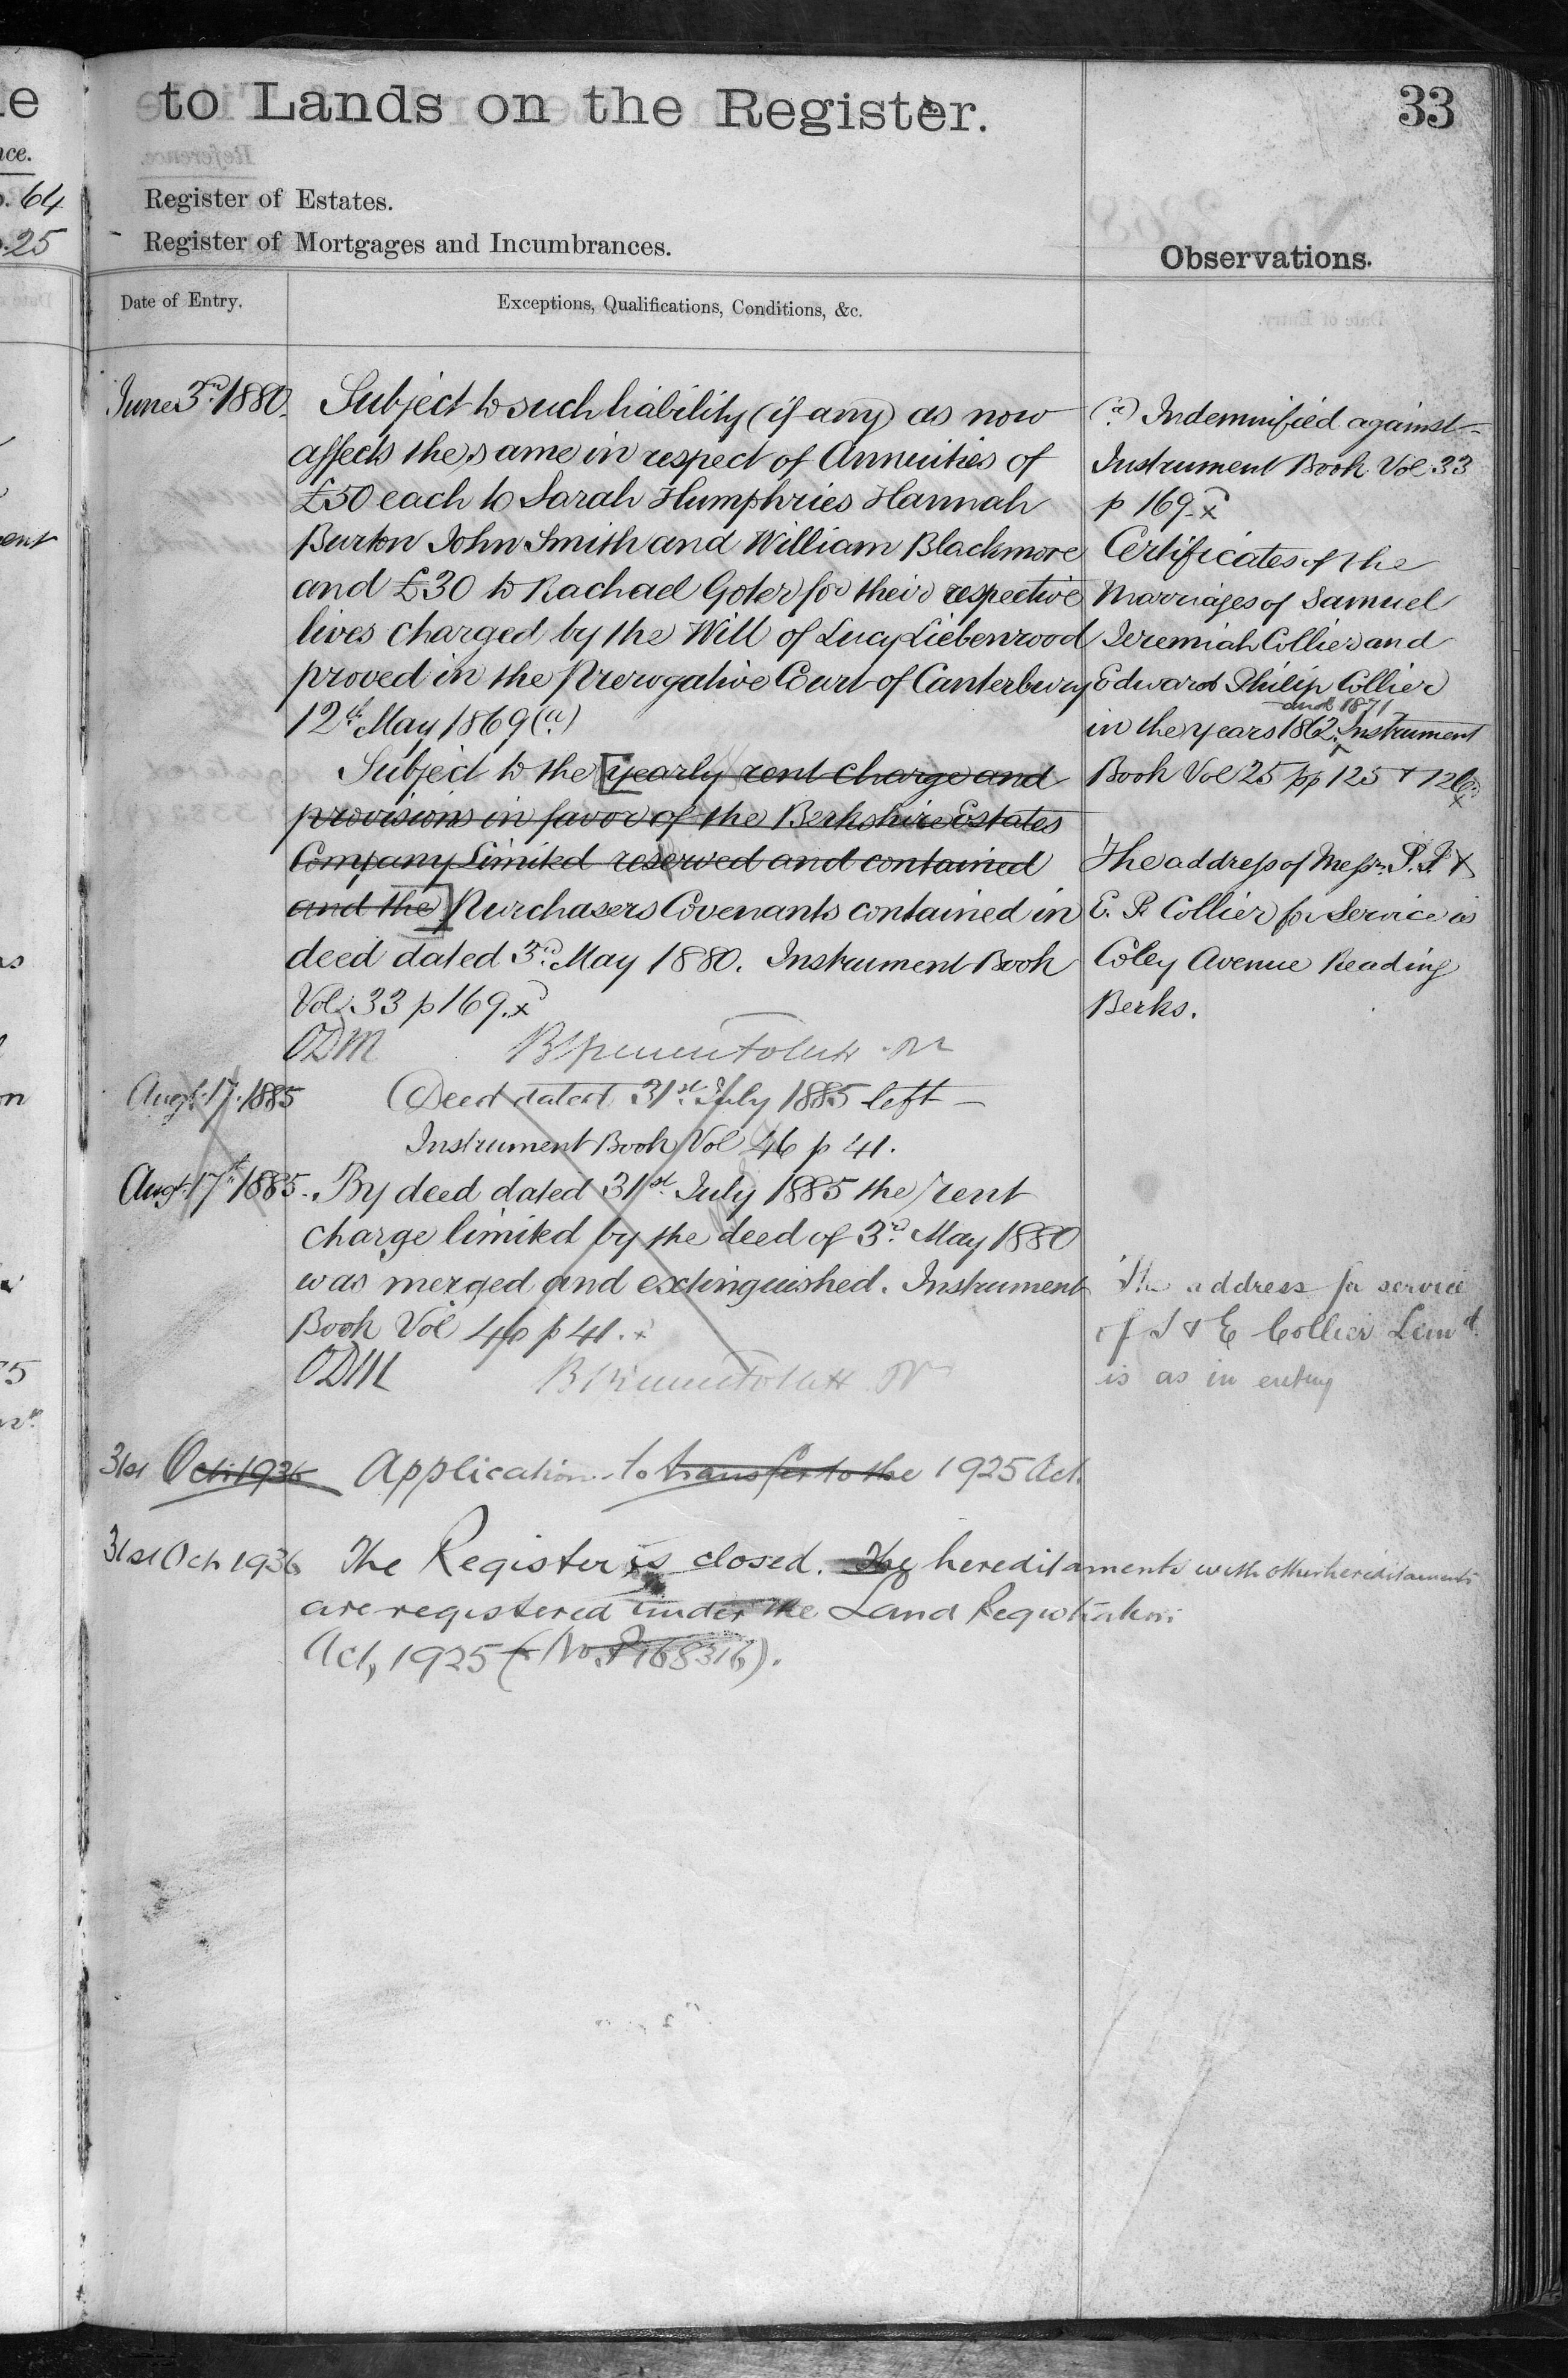 le
to Lands on the Register.
33
nce.
. 64
. 25
Register of Estates.
Register of Mortgages and Incumbrances.
Observations.
Date of Entry.
Exceptions, Qualifications, Conditions, &c.
June 3rd 1880.
Subject to such liability (if any) as now
affects the same in respect of Annuities of
£50 each to Sarah Humphries Hannah
Burton John Smith and William Blackmore
and £30 to Rachael Goter for their respective
lives charged by the Will of Lucy Liebenrood
proved in the Prerogative Court of Canterbury
12th May 1869 (a)
Subject to the [yearly rent charge and
provisions in favor of the Berkshire Estates
Company Limited reserved and contained
and the] Purchasers Covenants contained in
deed dated 3rd May 1880. Instrument Book
Vol 33 p 169. x
ODM
Augt. 17. 1885
Deed dated 31st July 1885 left
Instrument Book Vol 46 p 41.
Augt. 17th 1885.
By deed dated 31st July 1885 the rent
charge limited by the deed of 3rd May 1880
was merged and extinguished. Instrument
Book Vol 46 p 41. x
ODM
31st Oct. 1936
Application to transfer to the 1925 Act.
31st Oct 1936
The Register is closed. The hereditaments with other hereditaments
are registered under the Land Registration
Act, 1925 (No. P168316).
(a) Indemnified against
Instrument Book Vol 33
p 169. x
Certificates of the
Marriages of Samuel
Jeremiah Collier and
Edward Philip Collier
and 1871
in the years 1862. Instrument
Book Vol 25 pp 125 & 126. x
The address of Messrs. S. J. &
E. P. Collier for Service is
Coley Avenue Reading
Berks.
The address for service
of S & E Collier Limd.
is as in entry